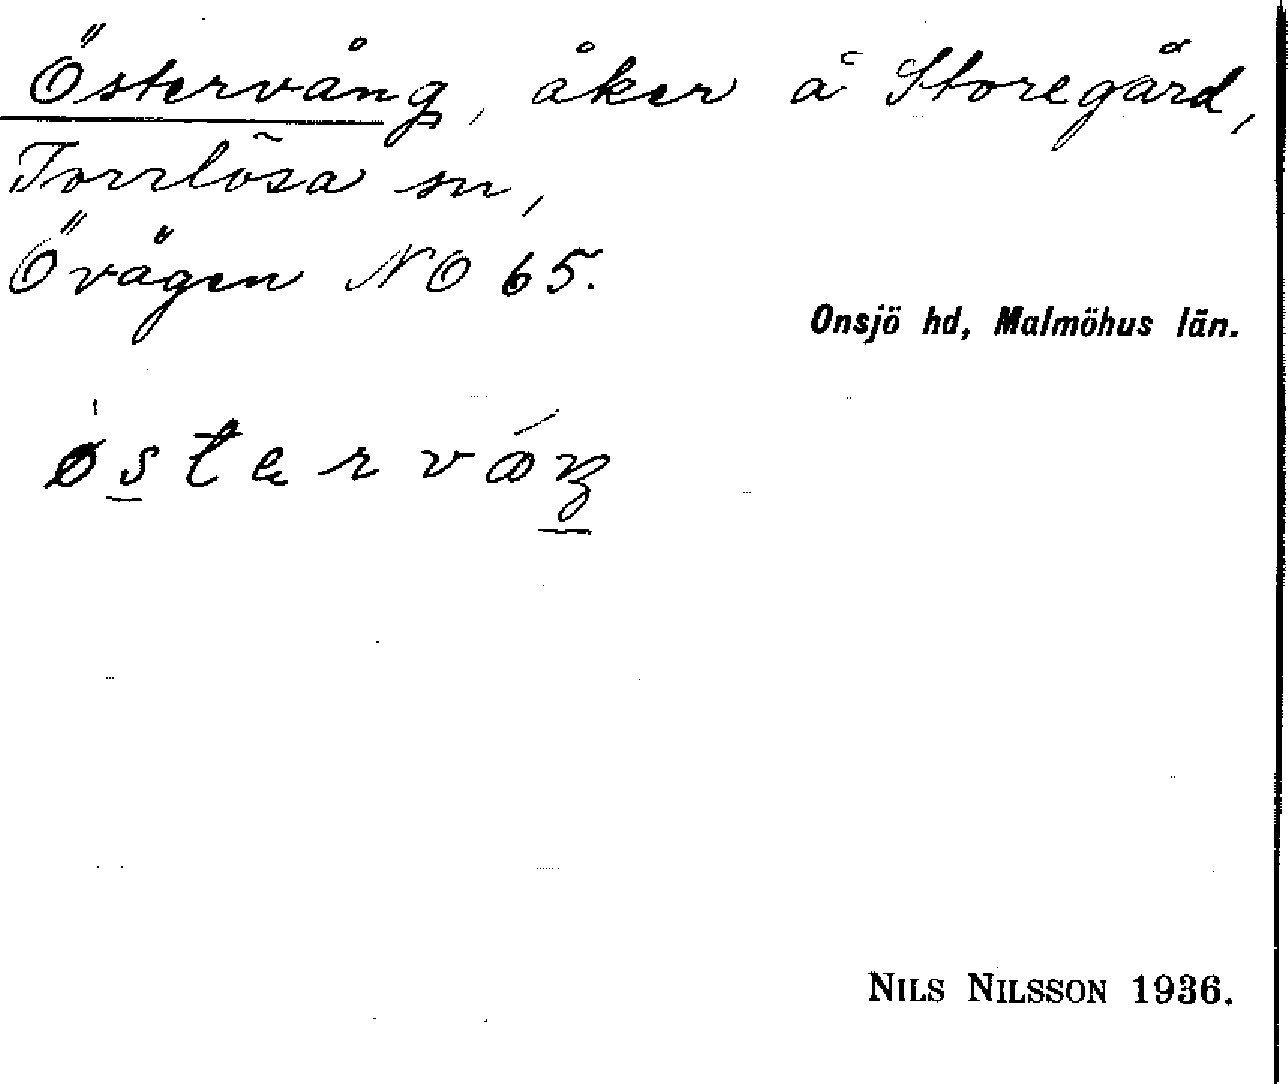 Östervång, åker å Storegård,
Torrlösa sn,
Övägen NO 65.
Onsjö hd, Malmöhus län.
NILS NILSSON 1936.